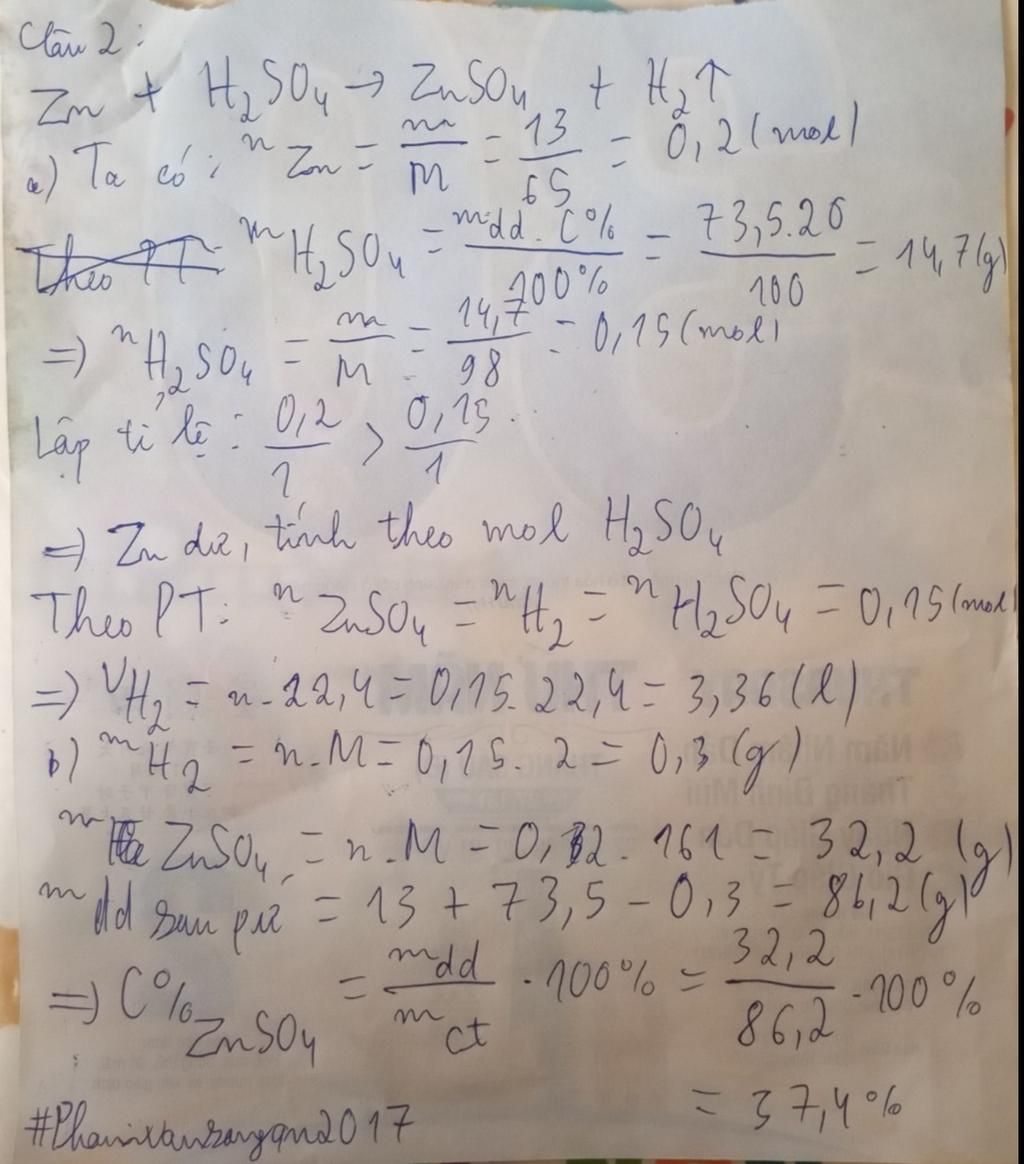 Câu 2:
Zn + H₂SO₄ → ZnSO₄ + H₂↑
a) Ta có: nZn = m/M = 13/65 = 0,2 (mol)
Theo PT mH₂SO₄ = mdd.C%/100% = 73,5.20/100 = 14,7(g)
=> nH₂SO₄ = m/M = 14,7/98 = 0,15(mol)
Lập tỉ lệ: 0,2/1 > 0,15/1
=> Zn dư, tính theo mol H₂SO₄
Theo PT: nZnSO₄ = nH₂ = nH₂SO₄ = 0,15(mol)
=> VH₂ = n.22,4 = 0,15.22,4 = 3,36(l)
b) mH₂ = n.M = 0,15.2 = 0,3(g)
mZnSO₄ = n.M = 0,2.161 = 32,2 (g)
mdd sau pứ = 13 + 73,5 - 0,3 = 86,2(g)
=> C%ZnSO₄ = mdd/mct . 100% = 32,2/86,2 . 100%
= 37,4%